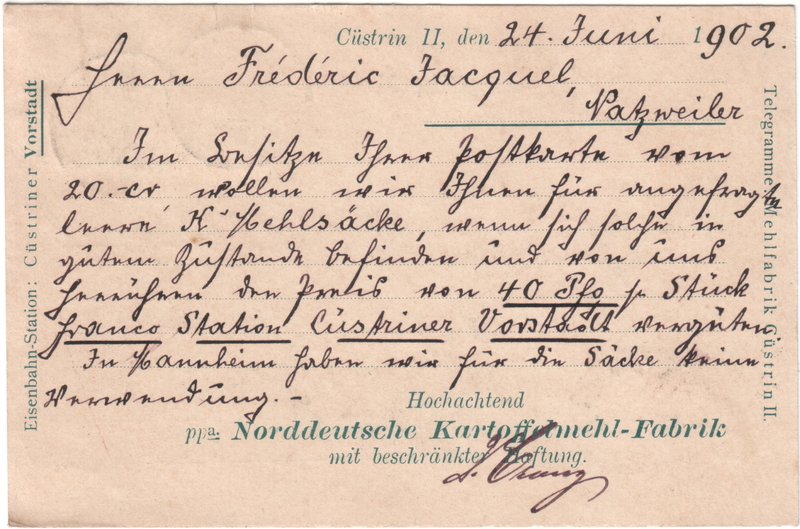 Cüstrin II, den 24. Juni 1902.
Herrn Frédéric Jacquel,
Natzweiler
Im Besitze Ihrer Postkarte vom
20. cr wollen wir Ihnen für angefragte
leere K'Mehlsäcke, wenn sich solche in
gutem Zustande befinden und von uns
herrühren den Preis von 40 Pfg p Stück
franco Station Cüstriner Vorstadt vergüten.
In Mannheim haben wir für die Säcke keine
Verwendung. –
Hochachtend
ppa. Norddeutsche Kartoffelmehl-Fabrik
mit beschränkter Haftung.
Eisenbahn-Station: Cüstriner Vorstadt
Telegramme: Mehlfabrik Cüstrin II.